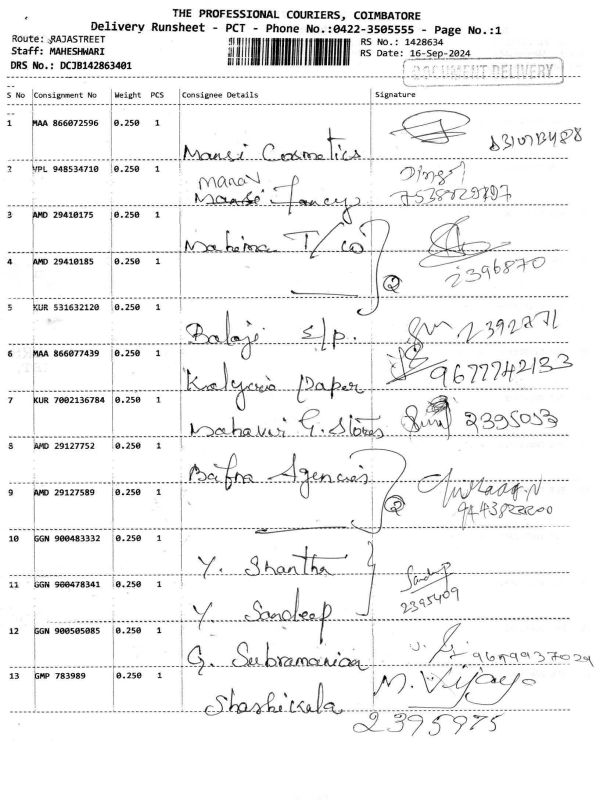 THE PROFESSIONAL COURIERS, COIMBATORE
Delivery Runsheet - PCT - Phone No.:0422-3505555 - Page No.:1
Route: RAJASTREET
RS No.: 1428634
Staff: MAHESHWARI
RS Date: 16-Sep-2024
DRS No.: DCJB142863401
DOCUMENT DELIVERY
S No Consignment No Weight PCS Consignee Details Signature
1 MAA 866072596 0.250 1
Mansi Cosmetics
2 VPL 948534710 0.250 1
Manav
Fancy
3 AMD 29410175 0.250 1
Mahima T/co
4 AMD 29410185 0.250 1
2 2396870
5 KUR 531632120 0.250 1
Balaji s/p.
6 MAA 866077439 0.250 1
Paper 9677742133
7 KUR 7002136784 0.250 1
Mahavir G. Stores 2395053
8 AMD 29127752 0.250 1
Bafna Agencies
9 AMD 29127589 0.250 1
2
10 GGN 900483332 0.250 1
Y. Shantha
11 GGN 900478341 0.250 1
Sandeep
2395409
Y. Sandeep
12 GGN 900505085 0.250 1
G. Subramanian
13 GMP 783989 0.250 1
M. Vijaya
Shashikala
2395975